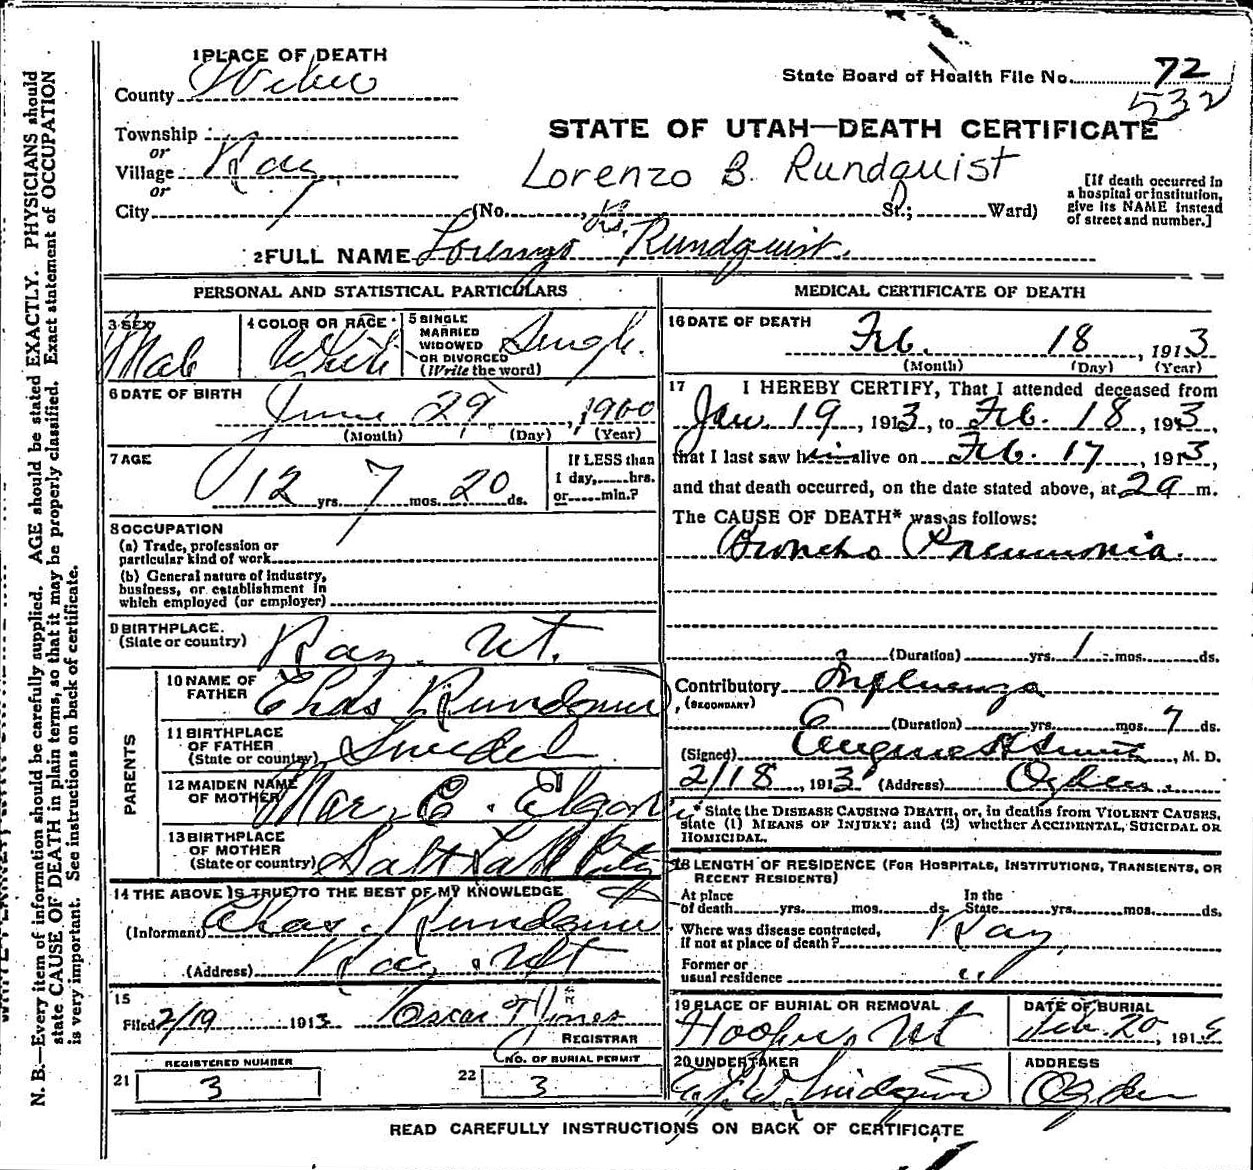 N. B.—Every item of information should be carefully supplied. AGE should be stated EXACTLY. PHYSICIANS should
state CAUSE OF DEATH in plain terms, so that it may be properly classified. Exact statement of OCCUPATION
is very important. See instructions on back of certificate.
1 PLACE OF DEATH
County Weber
State Board of Health File No. 72
532
Township
or
Village Kay
or
City
STATE OF UTAH—DEATH CERTIFICATE
Lorenzo B. Rundquist
[If death occurred in
a hospital or institution,
give its NAME instead
of street and number.]
(No. St.; Ward)
2 FULL NAME Lorenzo Rundquist.
PERSONAL AND STATISTICAL PARTICULARS
3 SEX Male
4 COLOR OR RACE White
5 SINGLE
MARRIED
WIDOWED
OR DIVORCED
(Write the word) Single.
6 DATE OF BIRTH
June 29, 1900
(Month) (Day) (Year)
7 AGE
12 yrs. 7 mos. 20 ds.
If LESS than
1 day, hrs.
or min.?
8 OCCUPATION
(a) Trade, profession or
particular kind of work
(b) General nature of industry,
business, or establishment in
which employed (or employer)
9 BIRTHPLACE.
(State or country) Kay. Ut.
PARENTS
10 NAME OF
FATHER Chas Rundquist
11 BIRTHPLACE
OF FATHER
(State or country) Sweden
12 MAIDEN NAME
OF MOTHER E.
13 BIRTHPLACE
OF MOTHER
(State or country) Salt Lake City
14 THE ABOVE IS TRUE TO THE BEST OF MY KNOWLEDGE
(Informant) Chas. Rundquist
(Address) Kay. Ut
15
Filed 2/19 1913 Oscar T Jones
REGISTRAR
REGISTERED NUMBER
21 3
NO. OF BURIAL PERMIT
22 3
MEDICAL CERTIFICATE OF DEATH
16 DATE OF DEATH
Feb. 18, 1913
(Month) (Day) (Year)
17 I HEREBY CERTIFY, That I attended deceased from
Jan 19, 1913, to Feb. 18, 1913,
that I last saw him alive on Feb. 17, 1913,
and that death occurred, on the date stated above, at 2 a m.
The CAUSE OF DEATH* was as follows:
Broncho Pneumonia.
(Duration) yrs. 1 mos. ds.
Contributory Influenza
(SECONDARY)
(Duration) yrs. mos. 7 ds.
(Signed) Eugene H Smith, M. D.
2/18, 1913 (Address) Ogden.
* State the DISEASE CAUSING DEATH, or, in deaths from VIOLENT CAUSES,
state (1) MEANS OF INJURY; and (2) whether ACCIDENTAL, SUICIDAL OR
HOMICIDAL.
18 LENGTH OF RESIDENCE (FOR HOSPITALS, INSTITUTIONS, TRANSIENTS, OR
RECENT RESIDENTS)
At place In the
of death yrs. mos. ds. State yrs. mos. ds.
Where was disease contracted,
if not at place of death? Kay,
Former or
usual residence "
19 PLACE OF BURIAL OR REMOVAL
Hooper, Ut
DATE OF BURIAL
Feb. 20, 191
20 UNDERTAKER
Lindquist
ADDRESS
Ogden
READ CAREFULLY INSTRUCTIONS ON BACK OF CERTIFICATE